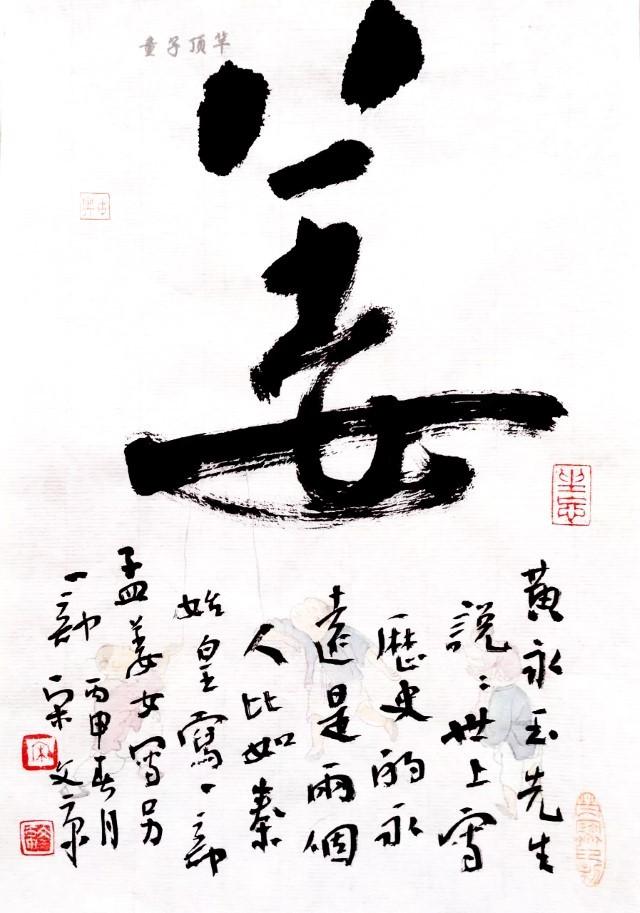 童子顶竿
姜
黄永玉先生
説：世上寫
歷史的永
遠是兩個
人比如秦
始皇寫一部
孟姜女寫另
一部
丙申春月
宋文京